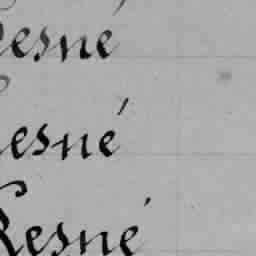 esné
esné
Resné